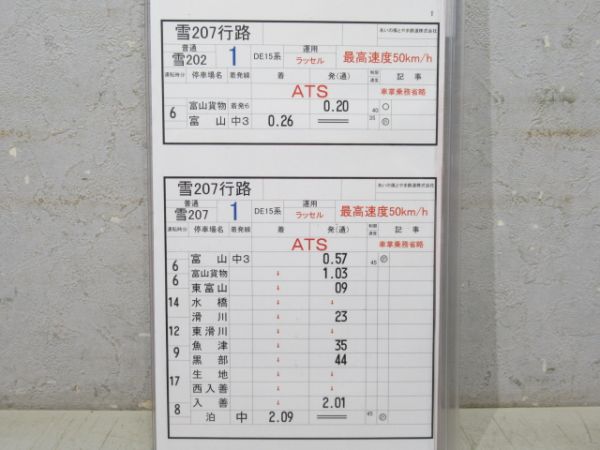 1
雪207行路
あいの風とやま鉄道株式会社
普通
雪202
1
DE15系
運用
ラッセル
最高速度50km/h
運転時分 停車場名 着発線 着 発(通) 制限速度 記事
ATS
車掌乗務省略
6 富山貨物 着発6 0.20 40
富山 中3 0.26 35
雪207行路
あいの風とやま鉄道株式会社
普通
雪207
1
DE15系
運用
ラッセル
最高速度50km/h
運転時分 停車場名 着発線 着 発(通) 制限速度 記事
ATS
車掌乗務省略
富山 中3 0.57 45
6 富山貨物 ↓ 1.03
6 東富山 ↓ 09
14 水橋 ↓ ↓
滑川 ↓ 23
12 東滑川 ↓ ↓
魚津 ↓ 35
9 黒部 ↓ 44
生地 ↓ ↓
17 西入善 ↓ ↓
入善 ↓ 2.01
8 泊 中 2.09 45